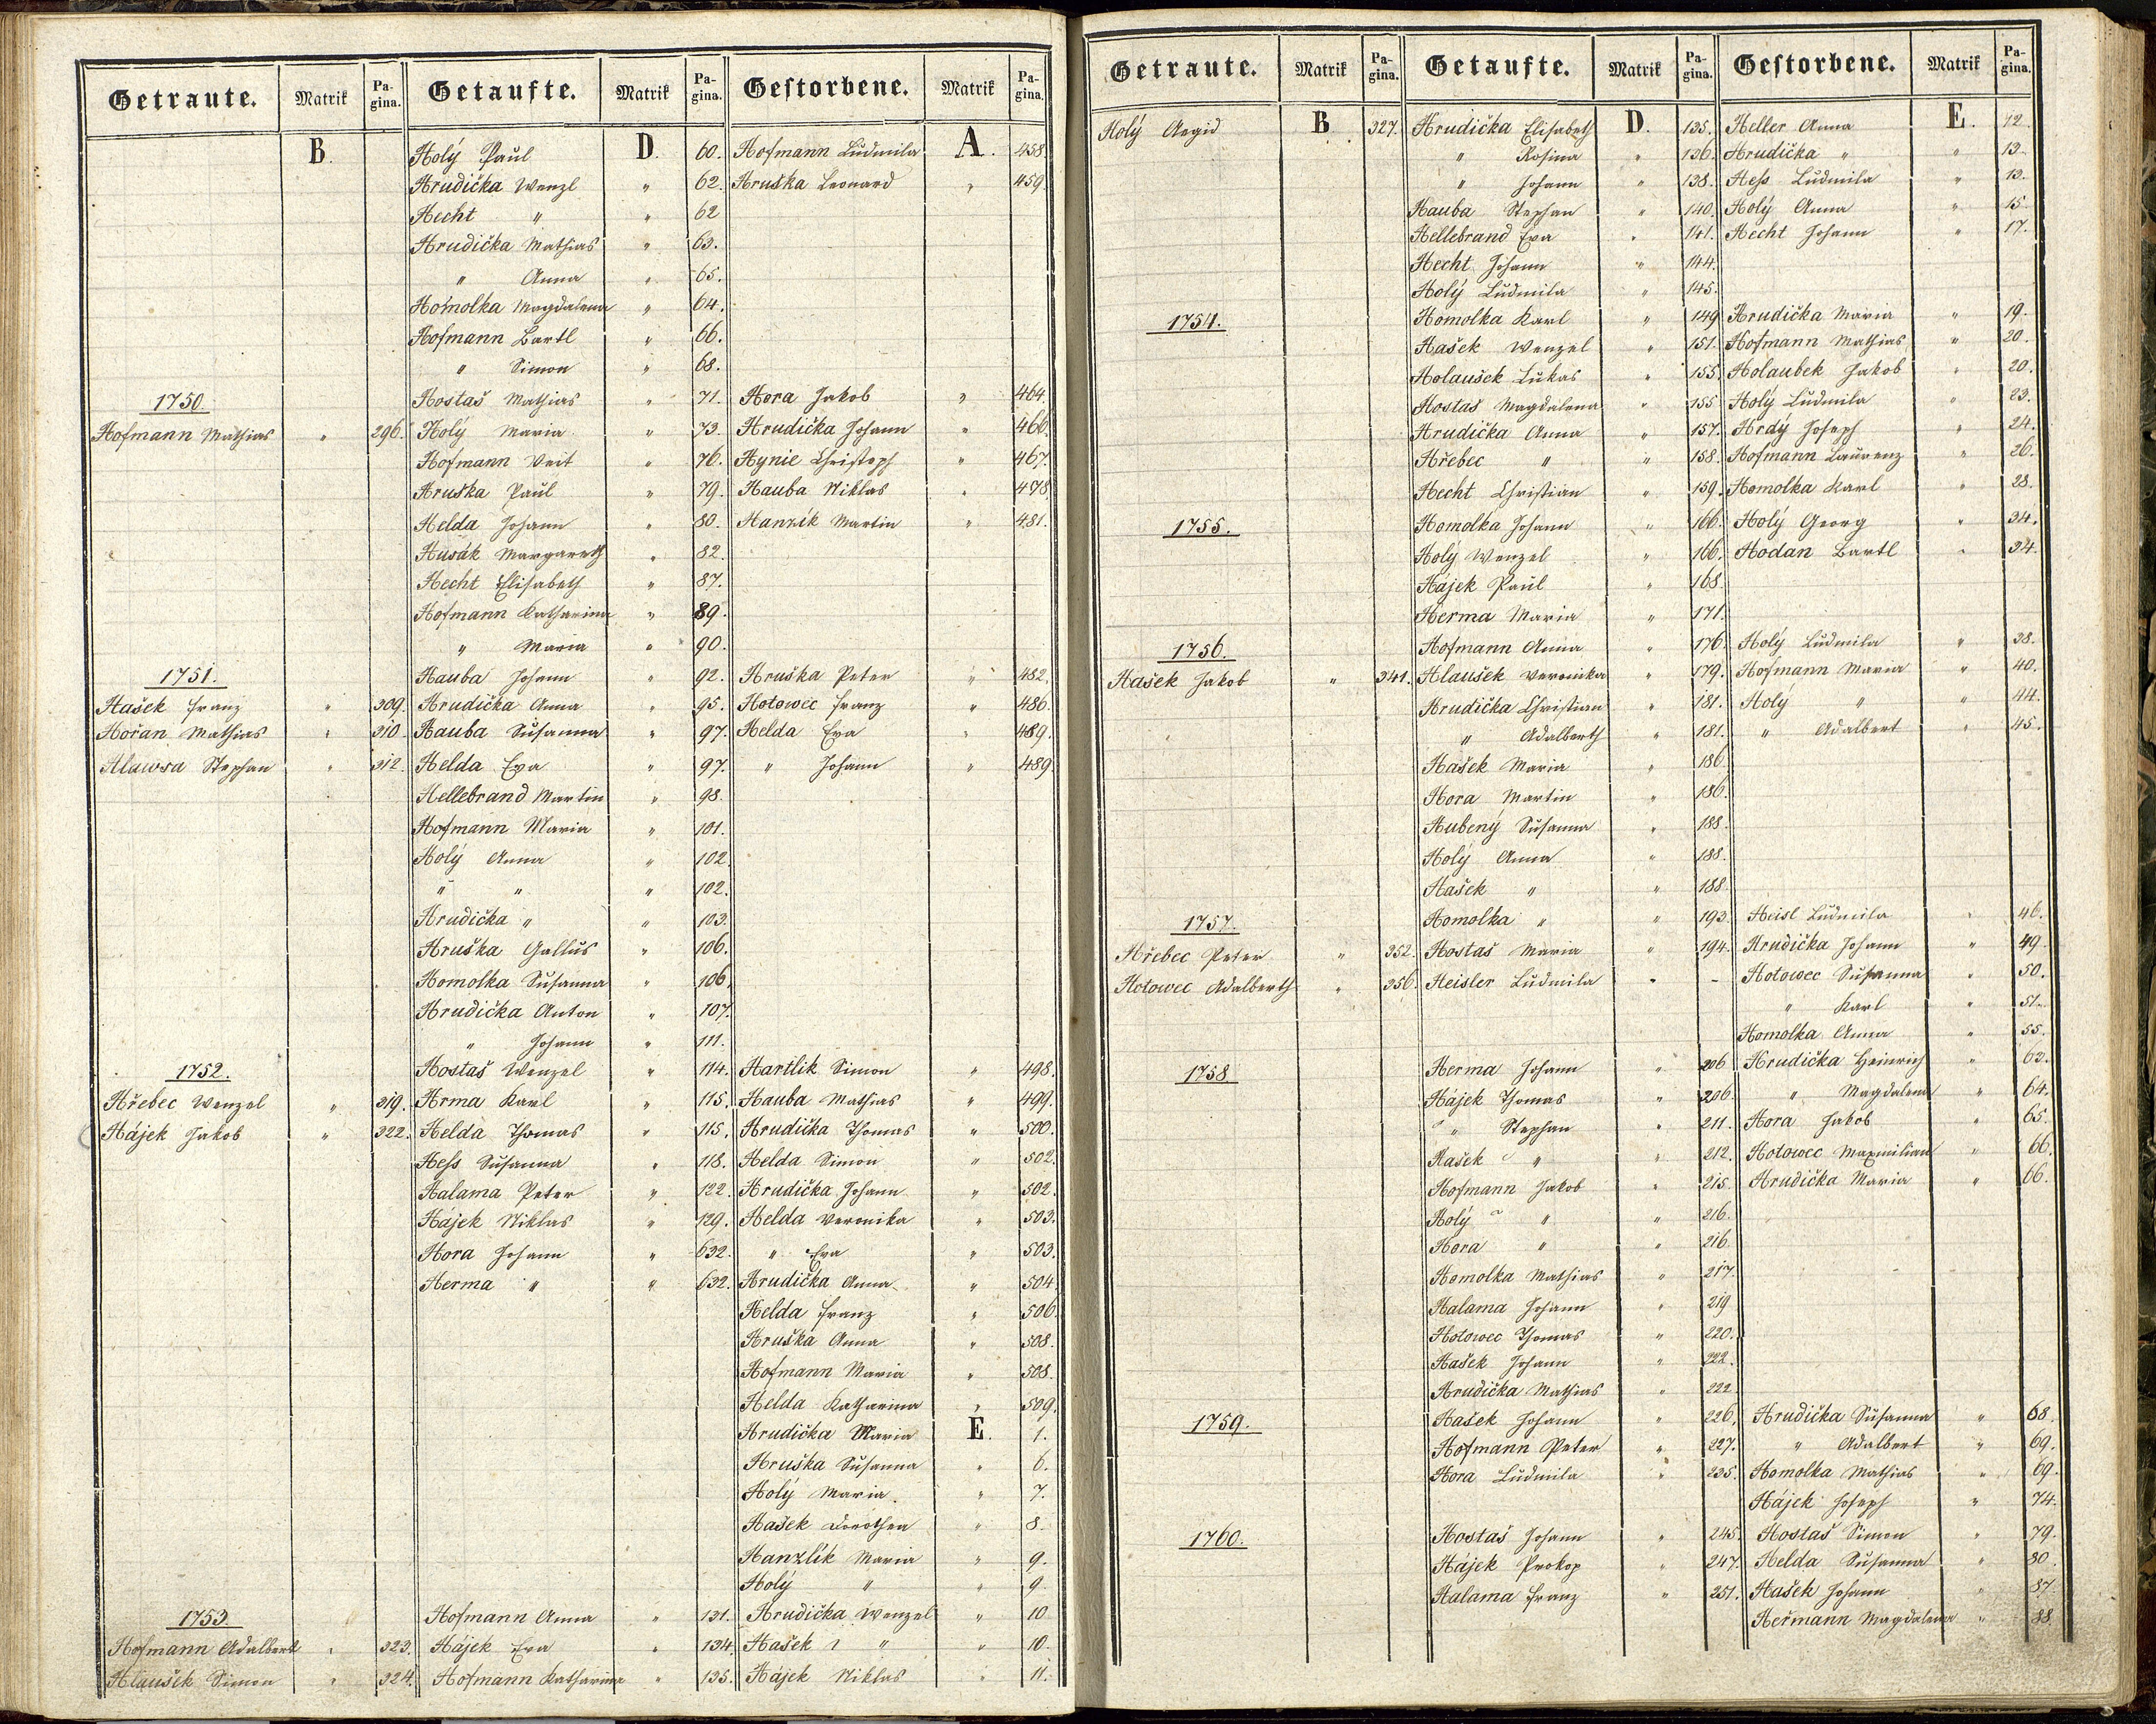 Getraute. Matrik Pagina. Getaufte. Matrik Pagina. Gestorbene. Matrik Pagina.
B. Holý Paul D. 60. Hofmann Ludmila A. 458.
Hrudička Wenzl " 62. Hruška Leonard " 459
Hecht " " 62
Hrudička Mathias " 63.
" Anna " 65.
Homolka Magdalena " 64.
Hofmann Bartl " 66.
" Simon " 68.
1750. Hostaš Mathias " 71. Hora Jakob " 464.
Hofmann Mathias " 296. Holý Maria " 73. Hrudička Johann " 466.
Hofmann Veit " 76. Hynie Christoph " 467.
Hruška Paul " 79. Hauba Niklas " 478.
Helda Johann " 80. Hanzik Martin " 481.
Husák Margareth " 82.
Hecht Elisabeth " 87.
Hofmann Katharina " 89.
" Maria " 90.
1751. Hauba Johann " 92. Hruška Peter " 482.
Hašek Franz " 309. Hrudička Anna " 95. Hotowec Franz " 486.
Hořan Mathias " 310. Hauba Susanna " 97. Helda Eva " 489.
Hlawsa Stephan " 312. Helda Eva " 97. " Johann " 489.
Hellebrand Martin " 98.
Hofmann Maria " 101.
Holý Anna " 102.
" " " 102.
Hrudička " " 103.
Hruška Gallus " 106.
Homolka Susanna " 106.
Hrudička Anton " 107.
" Johann " 111.
1752. Hostaš Wenzel " 114. Hartlik Simon " 498.
Hřebec Wenzel " 319. Hrma Karl " 115. Hauba Mathias " 499.
Hájek Jakob " 322. Helda Thomas " 115. Hrudička Thomas " 500.
Heß Susanna " 118. Helda Simon " 502.
Halama Peter " 122. Hrudička Johann " 502.
Hájek Niklas " 129. Helda Veronika " 503.
Hora Johann " 632. " Eva " 503.
Herma " " 632. Hrudička Anna " 504.
Helda Franz " 506.
Hruška Anna " 508.
Hofmann Maria " 508.
Helda Katharina " 509.
Hrudička Maria E. 1.
Hruška Susanna " 6.
Holý Maria " 7.
Hašek Dorothea " 8.
Hanzlík Maria " 9.
Holý " " 9
1753. Hofmann Anna " 131. Hrudička Wenzel " 10
Hofmann Adalbert " 323. Hájek Eva " 134. Hašek " " 10.
Hlaušek Simon " 324. Hofmann Katharina " 135. Hájek Niklas " 11.
Getraute. Matrik Pagina. Getaufte. Matrik Pagina. Gestorbene. Matrik Pagina.
Holý Aegid B 327. Hrudička Elisabeth D. 135. Heller Anna E. 12.
" Rosina " 136. Hrudička " " 13.
" Johann " 138. Heß Ludmila " 13.
Hauba Stephan " 140. Holý Anna " 15
Hellebrand Eva " 141. Hecht Johann " 17.
Hecht Johann " 144.
Holý Ludmila " 145.
1754. Homolka Karl " 149 Hrudička Maria " 19.
Hašek Wenzel " 151. Hofmann Mathias " 20.
Holaušek Lukas " 155. Holaubek Jakob " 20.
Hostaš Magdalena " 155 Holý Ludmila " 23.
Hrudička Anna " 157. Hrdý Joseph " 24.
Hřebec " " 158. Hofmann Laurenz " 26.
Hecht Christian " 159. Homolka Karl " 28.
1755. Homolka Johann " 166. Holý Georg " 34.
Holý Wenzel " 166. Hodan Bartl " 34.
Hájek Paul " 168.
Herma Maria " 171.
1756. Hofmann Anna " 176. Holý Ludmila " 38.
Hašek Jakob " 341. Hlaušek Veronika " 179. Hofmann Maria " 40.
Hrudička Christian " 181. Holý " " 44.
" Adalberth " 181. " Adalbert " 45.
Hašek Maria " 186
Hora Martin " 186.
Hubený Susanna " 188.
Holý Anna " 188.
Hašek " " 188.
1757. Homolka " " 193. Heisl Ludmila " 46.
Hřebec Peter " 352. Hostaš Maria " 194. Hrudička Johann " 49.
Hotowec Adalberth " 356. Heisler Ludmila " - Hotowec Susanna " 50.
" Karl " 51.
Homolka Anna " 55.
1758 Herma Johann " 206 Hrudička Heinrich " 63.
Hájek Thomas " 206. " Magdalena " 64.
" Stephan " 211. Hora Jakob " 65.
Hašek " " 212. Hotowec Maxmilian " 66.
Hofmann Jakob " 215. Hrudička Maria " 66.
Holý " " 216.
Hora " " 216.
Homolka Mathias " 217.
Halama Johann " 219
Hotowec Thomas " 220.
Hašek Johann " 222.
Hrudička Mathias " 222.
1759. Hašek Johann " 226. Hrudička Susanna " 68.
Hofmann Peter " 227. " Adalbert " 69.
Hora Ludmila " 235. Homolka Mathias " 69.
Hájek Joseph " 74.
1760. Hostaš Johann " 245. Hostaš Simon " 79.
Hájek Prokop " 247. Helda Susanna " 80.
Halama Franz " 251. Hašek Johann " 87.
Heřmann Magdalena " 88.